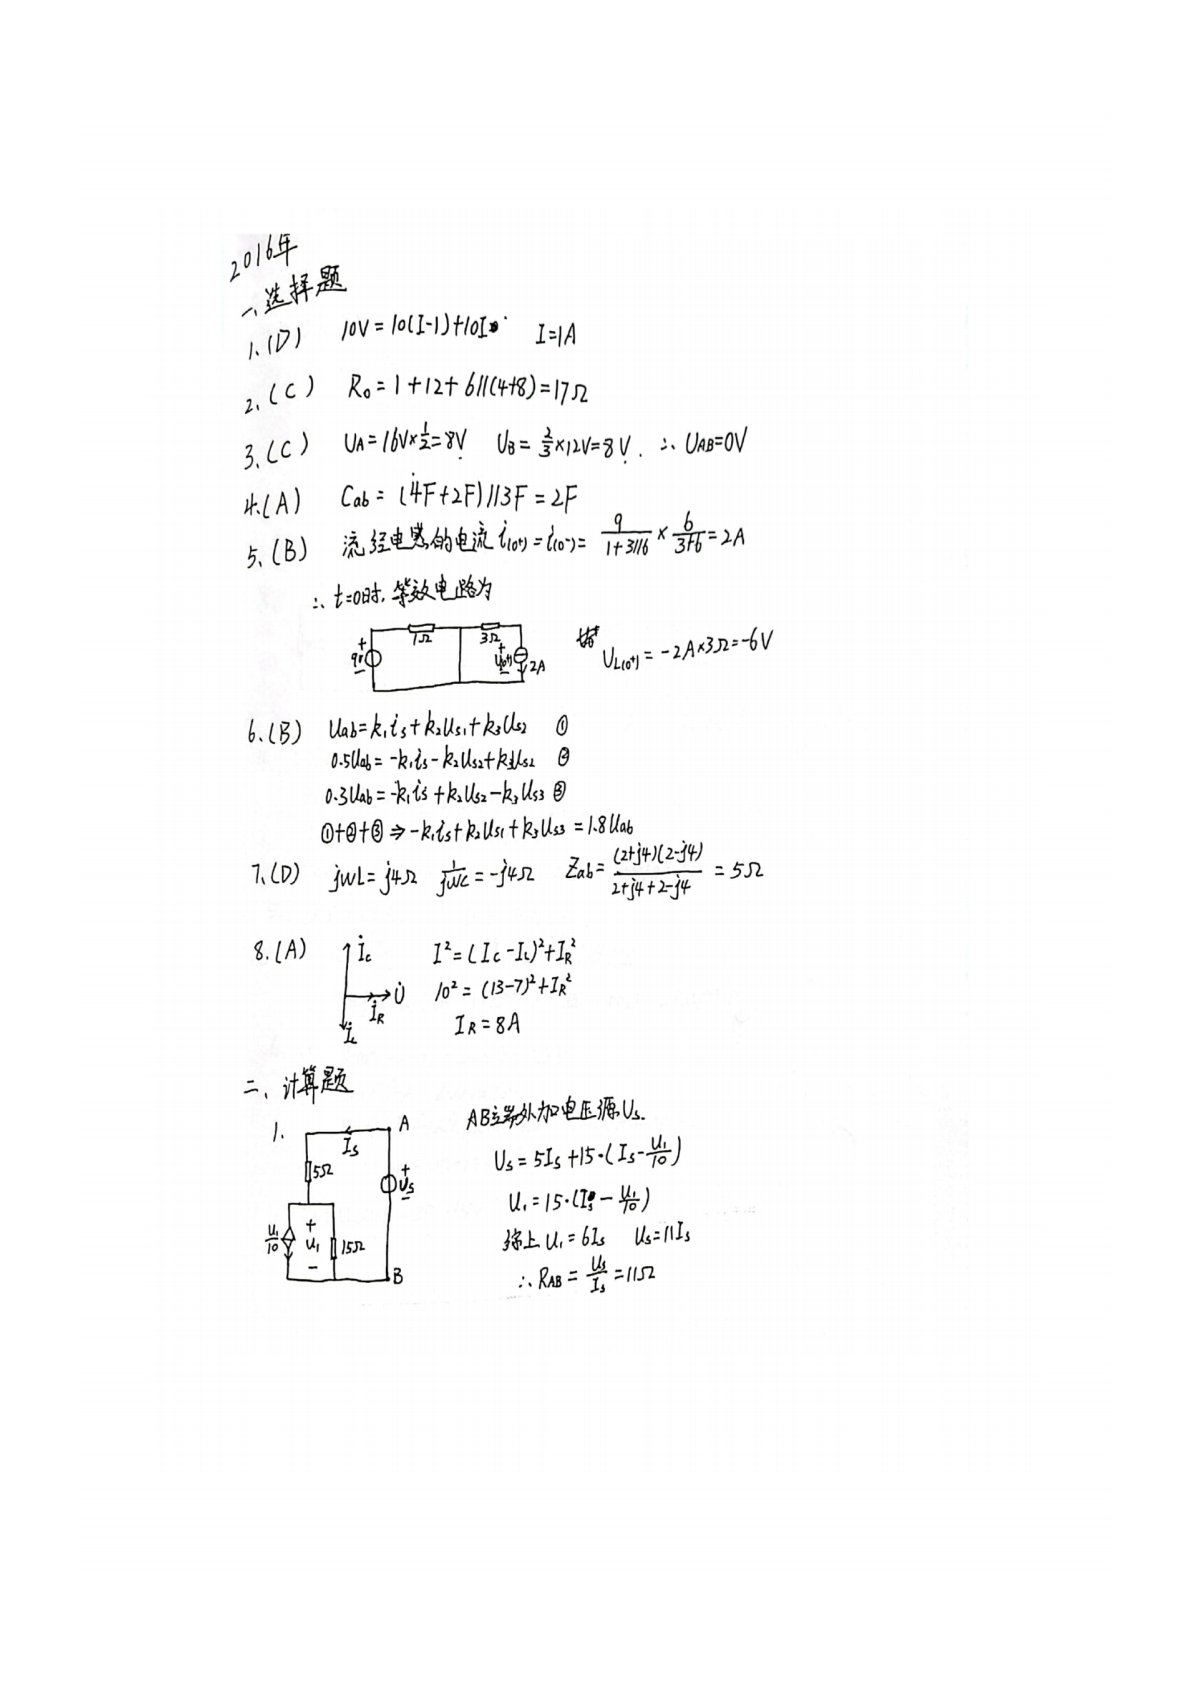 2016年
一、选择题
1、(D) 10V=10(I-1)+10I I=1A
2、(C) R₀=1+12+6//(4+8)=17Ω
3、(C) UA=16V×1/2=8V UB=2/3×12V=8V. ∴ UAB=0V
4.(A) Cab=(4F+2F)//3F=2F
5、(B) 流经电感的电流 i(0+)=i(0-)= 9/(1+3//6) × 6/(3+6)=2A
∴ t=0时,等效电路为
1Ω 3Ω
+ 9V - + U(0+) - 2A
UL(0+)=-2A×3Ω=-6V
6.(B) Uab=k₁is+k₂Us₁+k₃Us₂ ①
0.5Uab=-k₁is-k₂Us₂+k₃Us₂ ②
0.3Uab=-k₁is+k₂Us₂-k₃Us₃ ③
①+②+③⇒-k₁is+k₂Us₁+k₃Us₃=1.8Uab
7、(D) jWL=j4Ω 1/jWC=-j4Ω Zab=(2+j4)(2-j4)/(2+j4+2-j4)=5Ω
8.(A) İc I²=(Ic-IL)²+IR²
U̇ 10²=(13-7)²+IR²
İR IR=8A
İL
二、计算题
1. Is A AB端外加电压源Us.
5Ω + Us - Us=5Is+15·(Is-U₁/10)
U₁=15·(Is-U₁/10)
U₁/10 + U₁ - 15Ω 综上 U₁=6Is Us=11Is
B ∴ RAB=Us/Is=11Ω